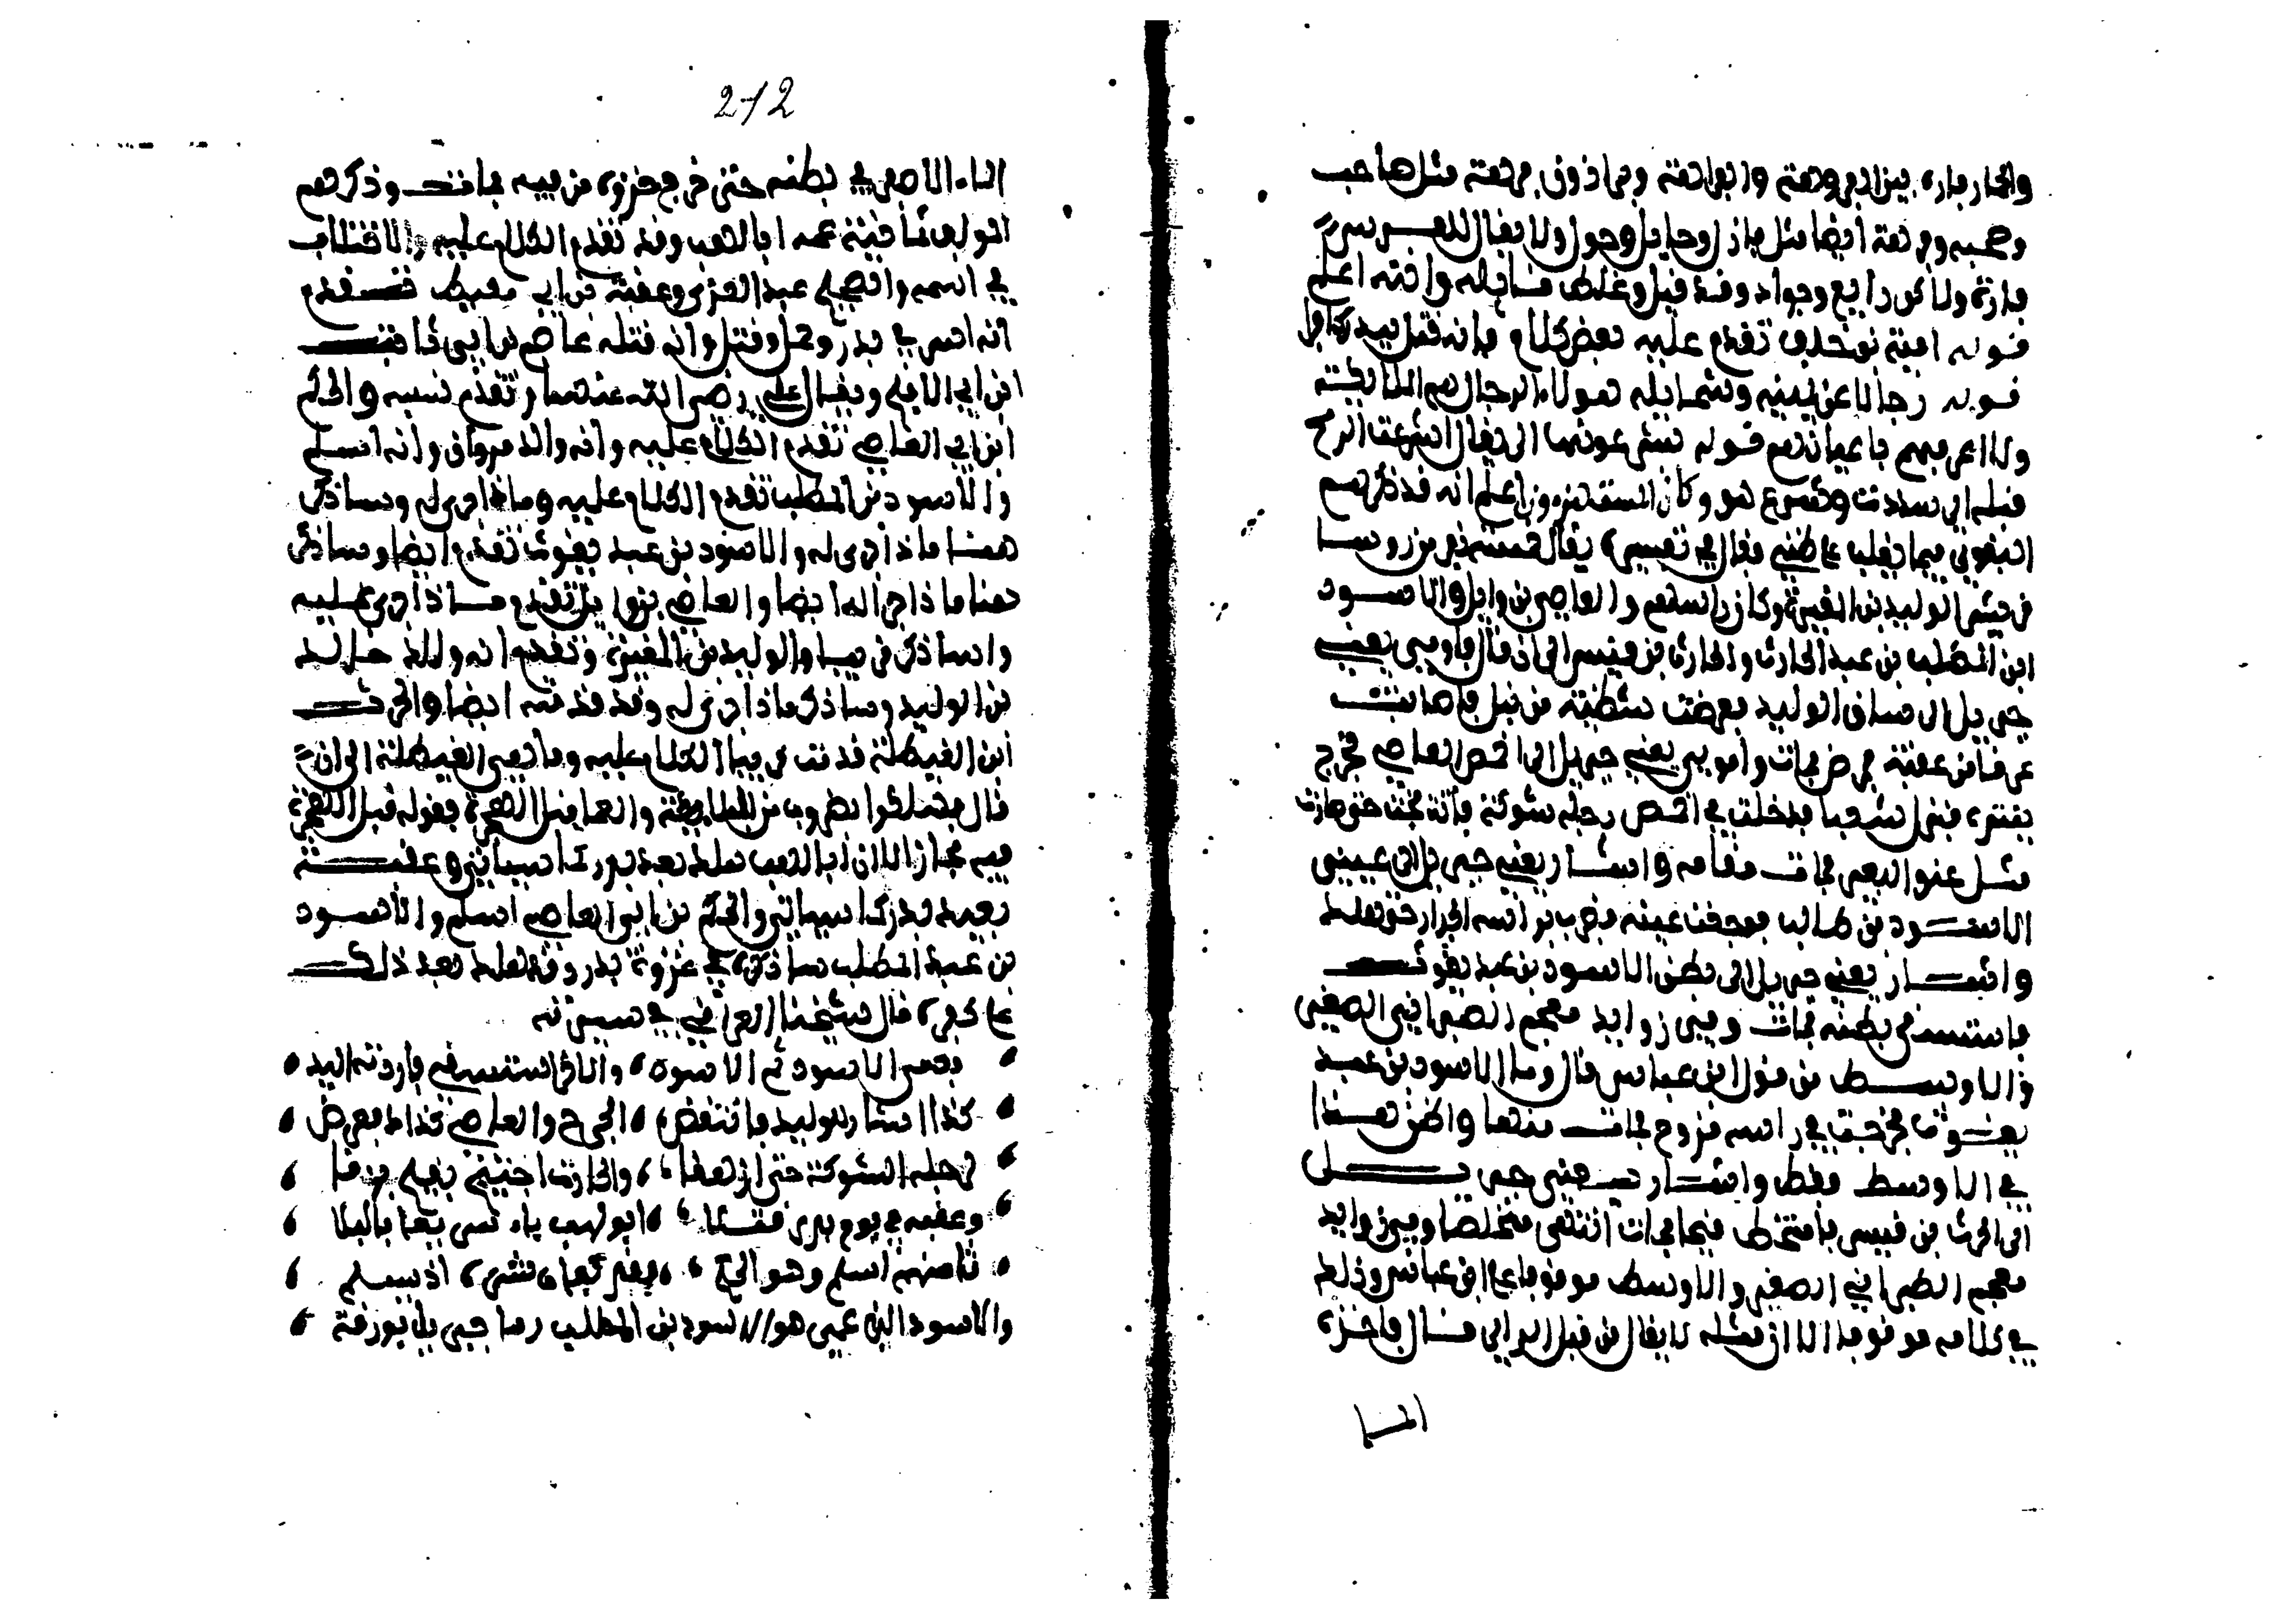 والحمار فاره بين الفروهة والفراهة وبراذون فرهة مثل صاحب
وصحبه وفرهة أيضا مثل بازل وحايل وحول ولا يقال للفرس
فارة ولاكن رايع وجواد وقد قيل وغلط قايله والله اعلم
قوله امية بن خلف تقدم عليه بعض كلام وانه قتل ببدر كافرا
قوله رجالا عن يمينه وشماله هولاء الرجال هم الملايكة
ولا اعرفهم باعيانهم قوله تشرعونها الي يقال اشرعت الرمح
قبله اي سددت وشرع هو وكان المستهزءون اعلم انه قد ذكرهم
البغوي فيما يغلب على ظني فقال في تفسيره يقال خمسة نفر من روسا
قريش الوليد بن المغيرة وكان راسهم والعاصي بن وايل والاسود
ابن المطلب بن عبد الحارث والحارث بن قيس الى ان قال فاومى يعني
جبريل الى ساق الوليد بعرضت شظية من نبل فاصابت
عرقا من عقبه فمرض فمات واومى يعني جبريل الى اخمص العاصي فخرج
يتنزه فنزل شعبا فدخلت في اخمص رجله شوكة فانتفخت حتى صارت
مثل عنق البعير فمات مقامه واشار يعني جبريل الى عيني
الاسود بن المطلب فوجعت عينه فضرب براسه الجدار حتى هلك
واشار يعني جبريل الى بطن الاسود بن عبد يغوث
فاستسقى بطنه فمات وفي زوايد معجم الطبراني الصغير
والاوسط من قول ابن عباس قال وما الاسود بن عبد
يغوث فخرجت في راسه قروح فمات منها واظن هذا
في الاوسط فقط واشار يعني جبريل
الى الحرث بن قيس بامتخط قيحا فمات انتهى ملخصا وفي زوايد
معجم الطبراني الصغير والاوسط موقوفا على ابن عباس وذلك
في كلامه موقوفا الا ان مثله لا يقال من قبل الراي قال فاخذه
الما
212
الماء الاصفر في بطنه حتى خرج خروه من فيه فمات وذكرهم
المولف ثمانية عمه ابا لهب وقد تقدم الكلام عليه والاختلاف
في اسمه والصحيح عبد العزى وعقبة بن ابي معيط فقد تقدم
انه اسر في بدر وحمل وقتل وانه قتله عاصم بن ثابت
ابن ابي الاقلح ويقال علي رضي الله عنهما وتقدم نسبه والحكم
ابن ابي العاصي تقدم الكلام عليه وانه والد مروان وانه اسلم
والاسود بن المطلب تقدم الكلام عليه وماذا جرى له وساذكر
هنا ماذا جرى له والاسود بن عبد يغوث تقدم ايضا وساذكر
هنا ماذا جرى له ايضا والعاصي بن وايل تقدم ماذا جرى عليه
وانا ساذكره قريبا والوليد بن المغيرة وتقدم انه والد خالد
بن الوليد وساذكر ماذا جرى له وقد قدمته ايضا والحرث
ابن الغيطلة قدمت قريبا الكلام عليه وما معنى الغيطلة الى ان
قال فهلكوا بضروب من البلاء والعمى قبل الهجرة فقوله قبل الهجرة
فيه مجاز لان ابا لهب هلك بعد بدر كما سياتي وعقبة
بعيد بدر كما سياتي والحكم بن ابي العاصي اسلم والاسود
بن عبد المطلب ساذكره في غزوة بدر وقد هلك بعد ذلك
على كفره قال شيخنا العراقي في سيرته
بعمي الاسود ثم الاسود، والاخر استسقى فاردته اليد
كذا اشار للوليد فانتقض، الجرح والعاصي كذاك فعرض
لرجله الشوكة حتى ازهقا، والحارث اجتيح بقيح بزقا
وعقبة في يوم بدر قتلا، ابو لهب باء سريعا بالبلا
ثامنهم اسلم وهو الحكم، فقد كفاه شره اذ يسلم
والاسود الذي عمي هو الاسود بن المطلب رماه جبريل بورقة